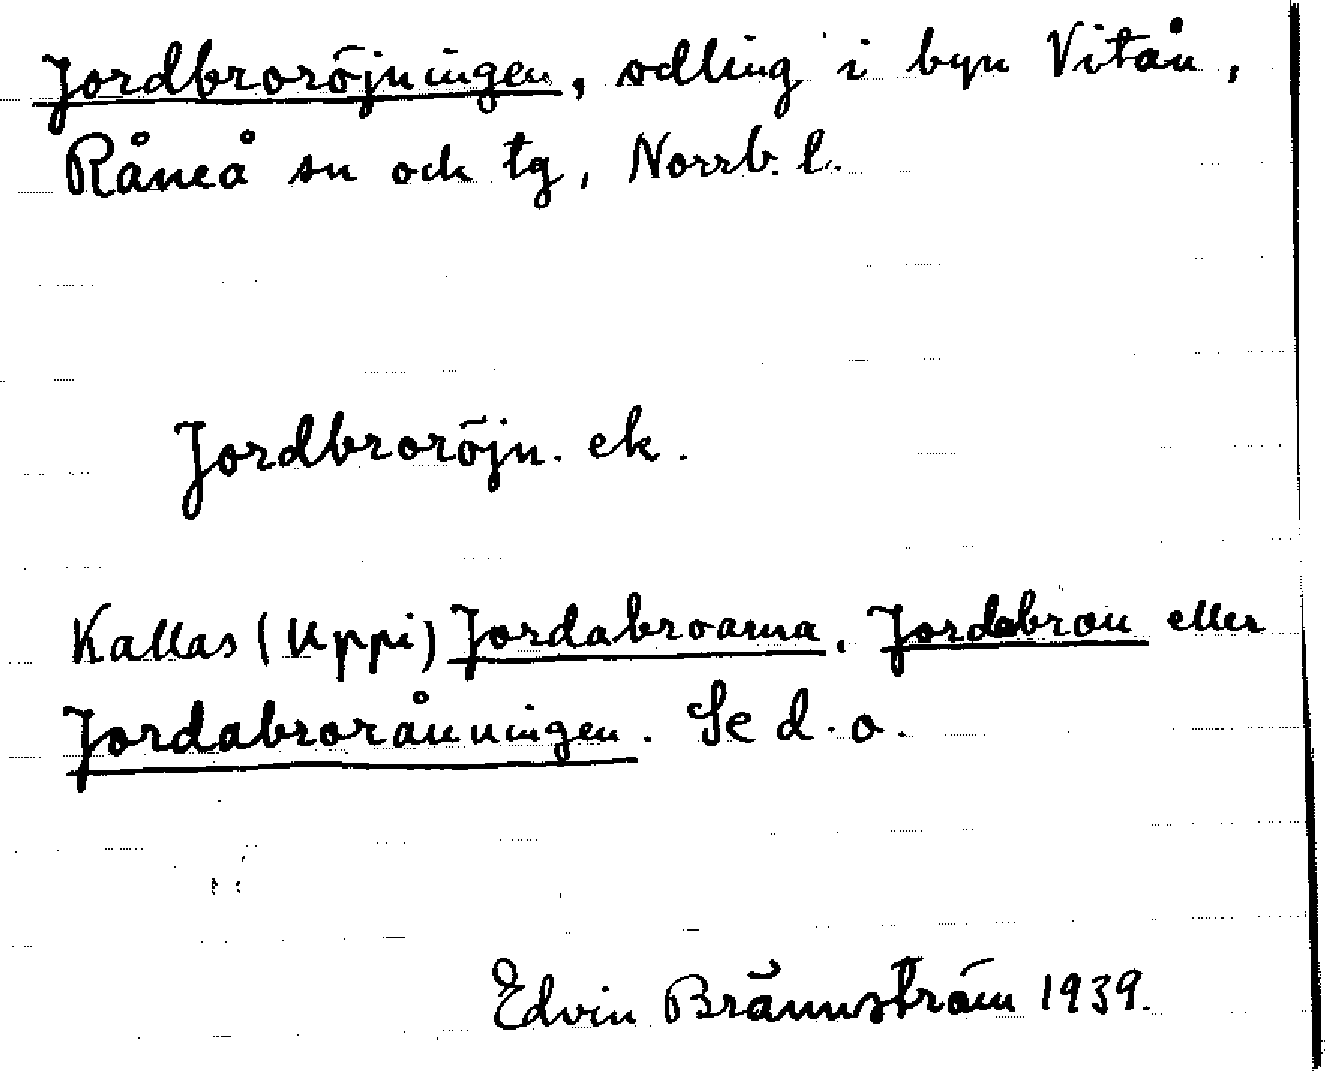 Jordbroröjningen, odling i byn Vitån,
Råneå sn och tg, Norrb. l.
Jordbroröjn. ek.
Kallas (Uppi) Jordabroarna. Jordabron eller
Jordabrorånningen. Se d. o.
Edvin Brännström 1939.